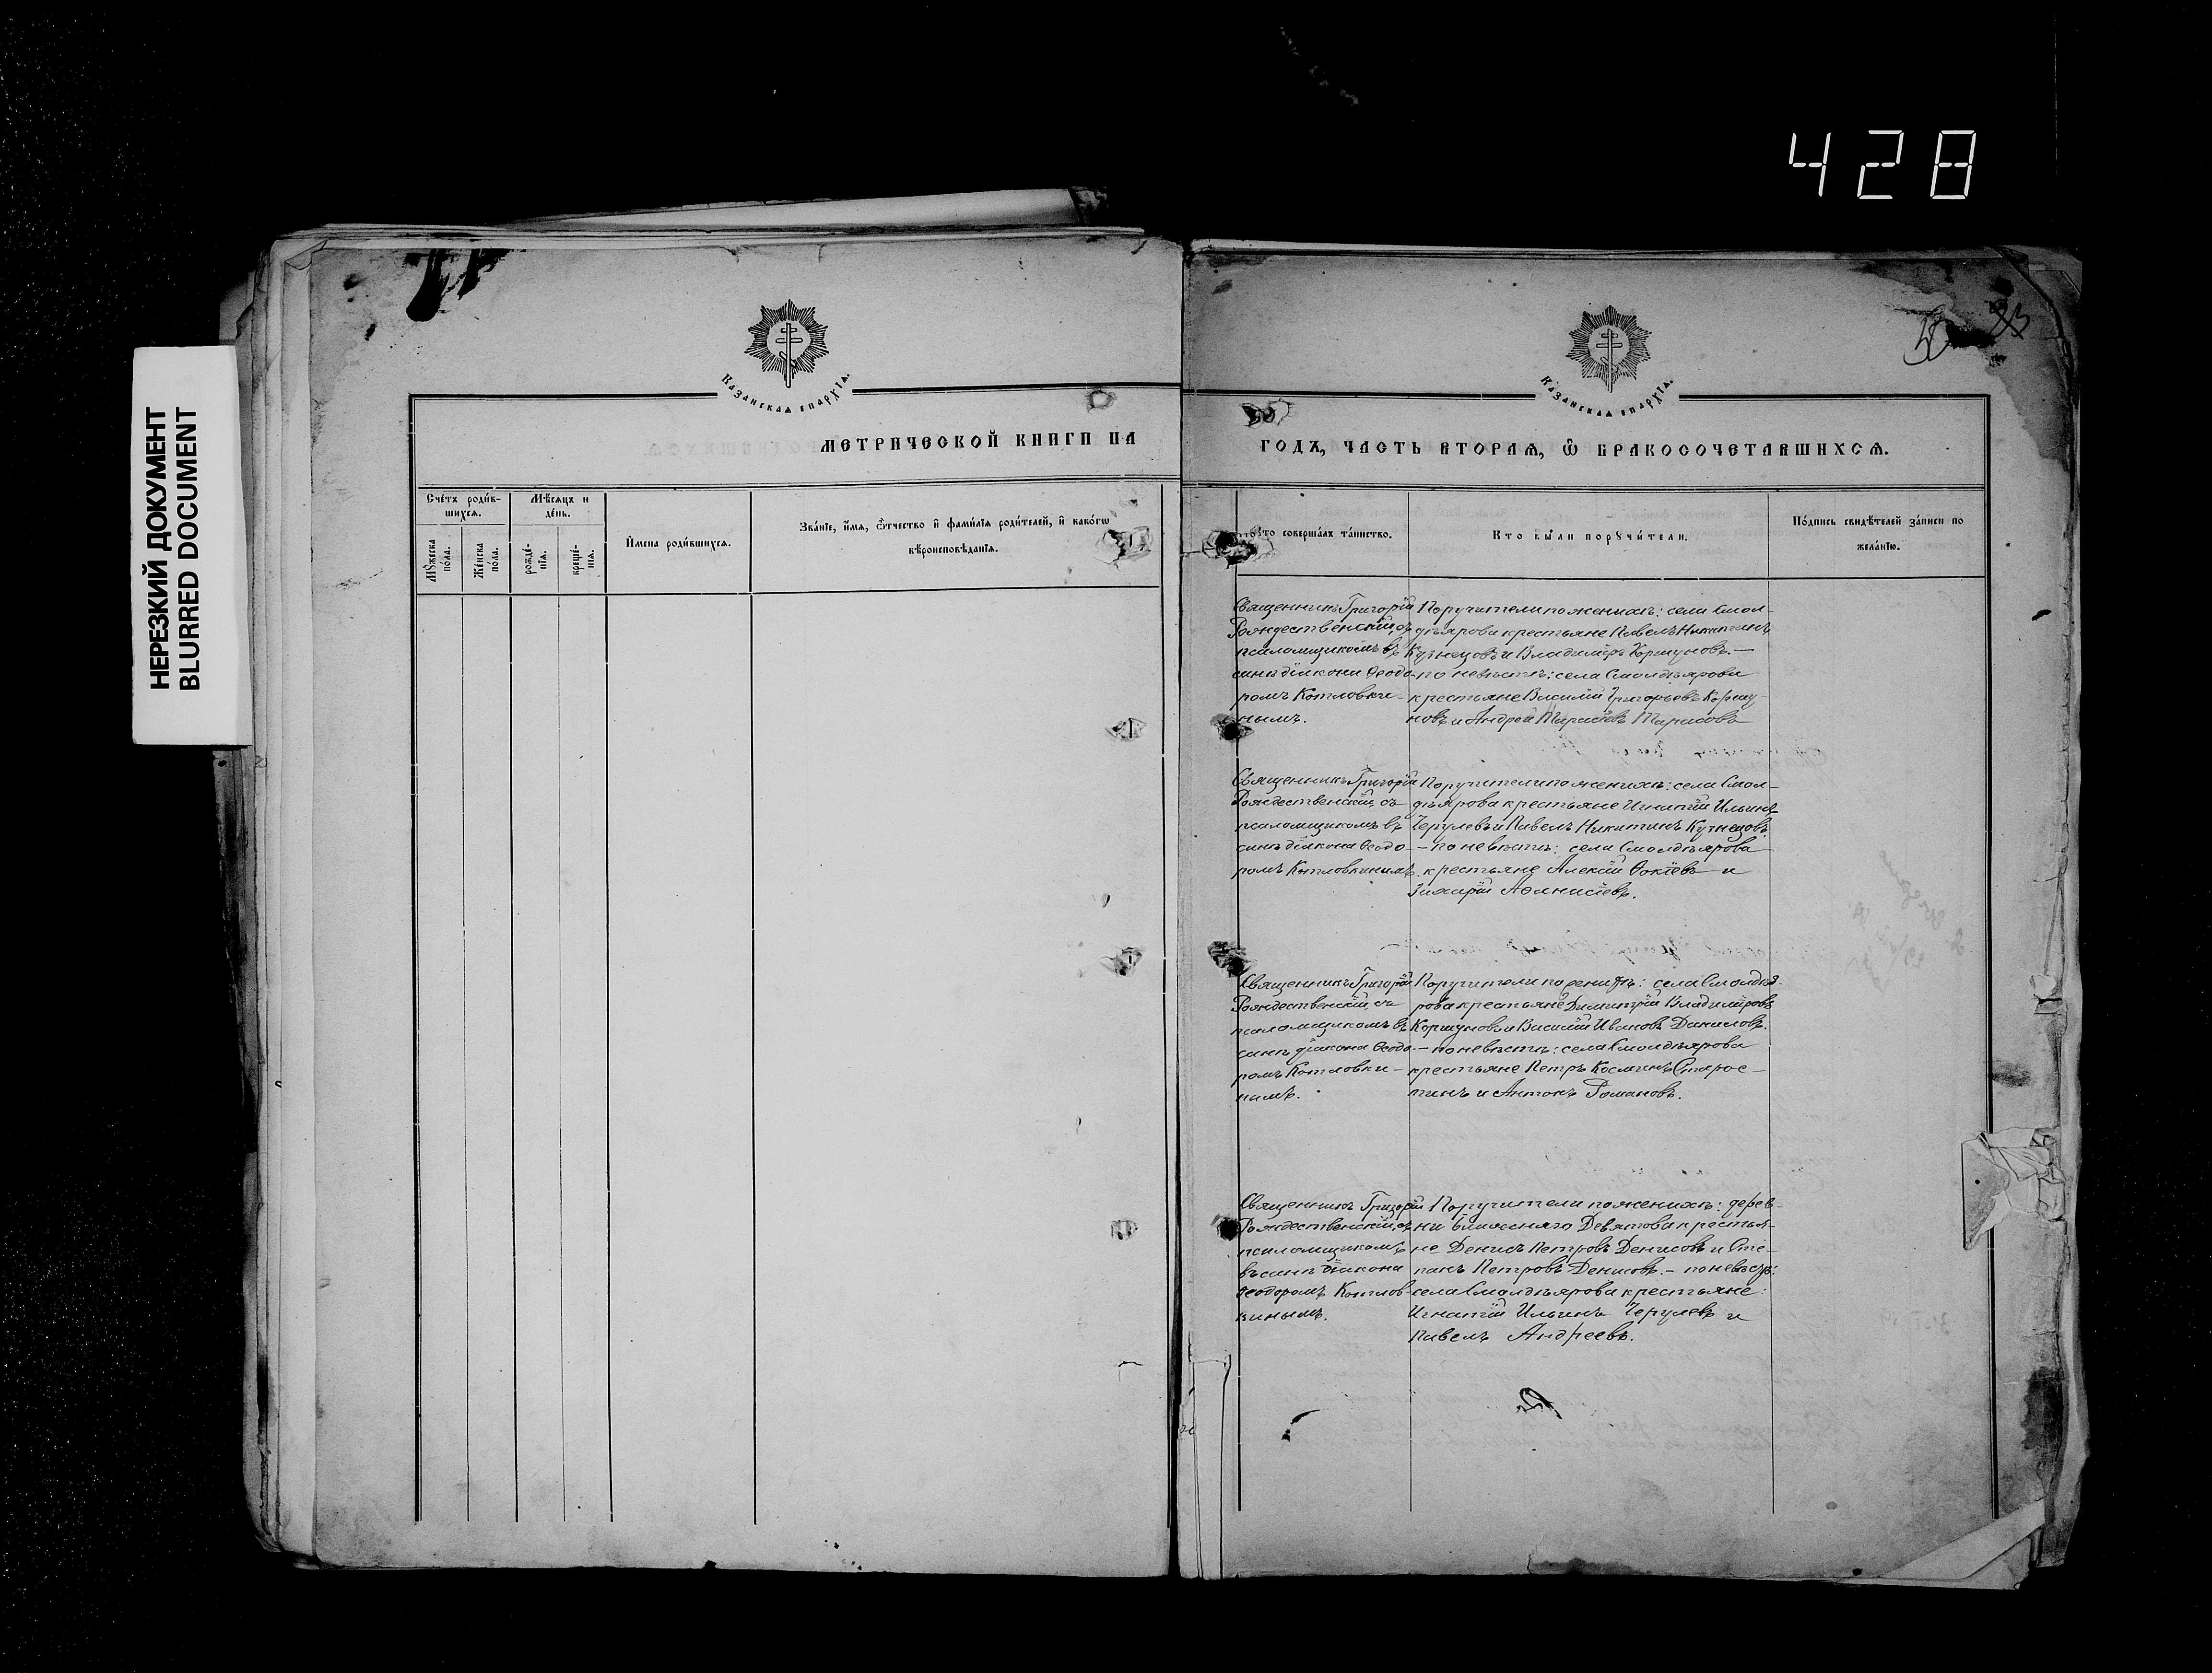 428
НЕРЕЗКИЙ ДОКУМЕНТ
BLURRED DOCUMENT
Казанская епархїа.
МЕТРИЧЕСКОЙ КНИГИ НА
Сче́тъ роди́в-
шихся.
Мѣ́сяцъ и
де́нь.
Мꙋ́жеска
по́ла.
Же́нска
по́ла.
рожде́-
нїѧ.
креще́-
нїѧ.
И҆мена̀ роди́вшихсѧ.
Зва́нїе, и҆́мѧ, ѻ҆́тчество и҆ фами́лїѧ роди́телей, и҆ како́гѡ
вѣроисповѣ́данїѧ.
Казанская епархїа.
ГОДЪ, ЧАСТЬ ВТОРАѦ, Ѽ БРАКОСОЧЕТАВШИХСѦ.
Кто̀ соверша́лъ та́инство.
Кто̀ бы́ли порꙋчи́тели.
По́дпись свидѣ́телей за́писи по
жела́нїю.
Священникъ Григорій
Рождественскій, съ
псаломщикомъ въ
санѣ діакона Ѳеодо-
ромъ Котловки-
нымъ.
Поручители по женихѣ: села Смол-
дѣярова крестьяне Павелъ Никитинъ
Кузнецовъ и Владиміръ Коршуновъ. —
по невѣстѣ: села Смолдѣярова
крестьяне Василій Григорьевъ Коршу-
новъ и Андрей Тарасовъ
Священникъ Григорій
Рождественскій, съ
псаломщикомъ въ
санѣ діакона Ѳеодо-
ромъ Котловкинымъ.
Поручители по женихѣ: села Смол-
дѣярова крестьяне Игнатій Ильинъ
Черулевъ и Павелъ Никитинъ Кузнецовъ.
— по невѣстѣ: села Смолдѣярова
крестьяне Алексій и
Захарій
Священникъ Григорій
Рождественскій, съ
псаломщикомъ въ
санѣ діакона Ѳеодо-
ромъ Котловки-
нымъ.
Поручители по женихѣ: села Смолдѣя-
рова крестьяне Димитрій Владиміровъ
Коршуновъ и Василій Ивановъ Даниловъ.
— по невѣстѣ: села Смолдѣярова
крестьяне Петръ Косминъ Старос-
тинъ и Антонъ Романовъ.
Священникъ Григорій
Рождественскій, съ
псаломщикомъ
въ санѣ діакона
Ѳеодоромъ Котлов-
кинымъ.
Поручители по женихѣ: дерев-
ни Ближняго Девятова крестья-
не Денисъ Петровъ Денисовъ и Сте-
панъ Петровъ Денисовъ. — по невѣстѣ:
села Смолдѣярова крестьяне:
Игнатій Ильинъ Черулевъ и
Павелъ Андреевъ.